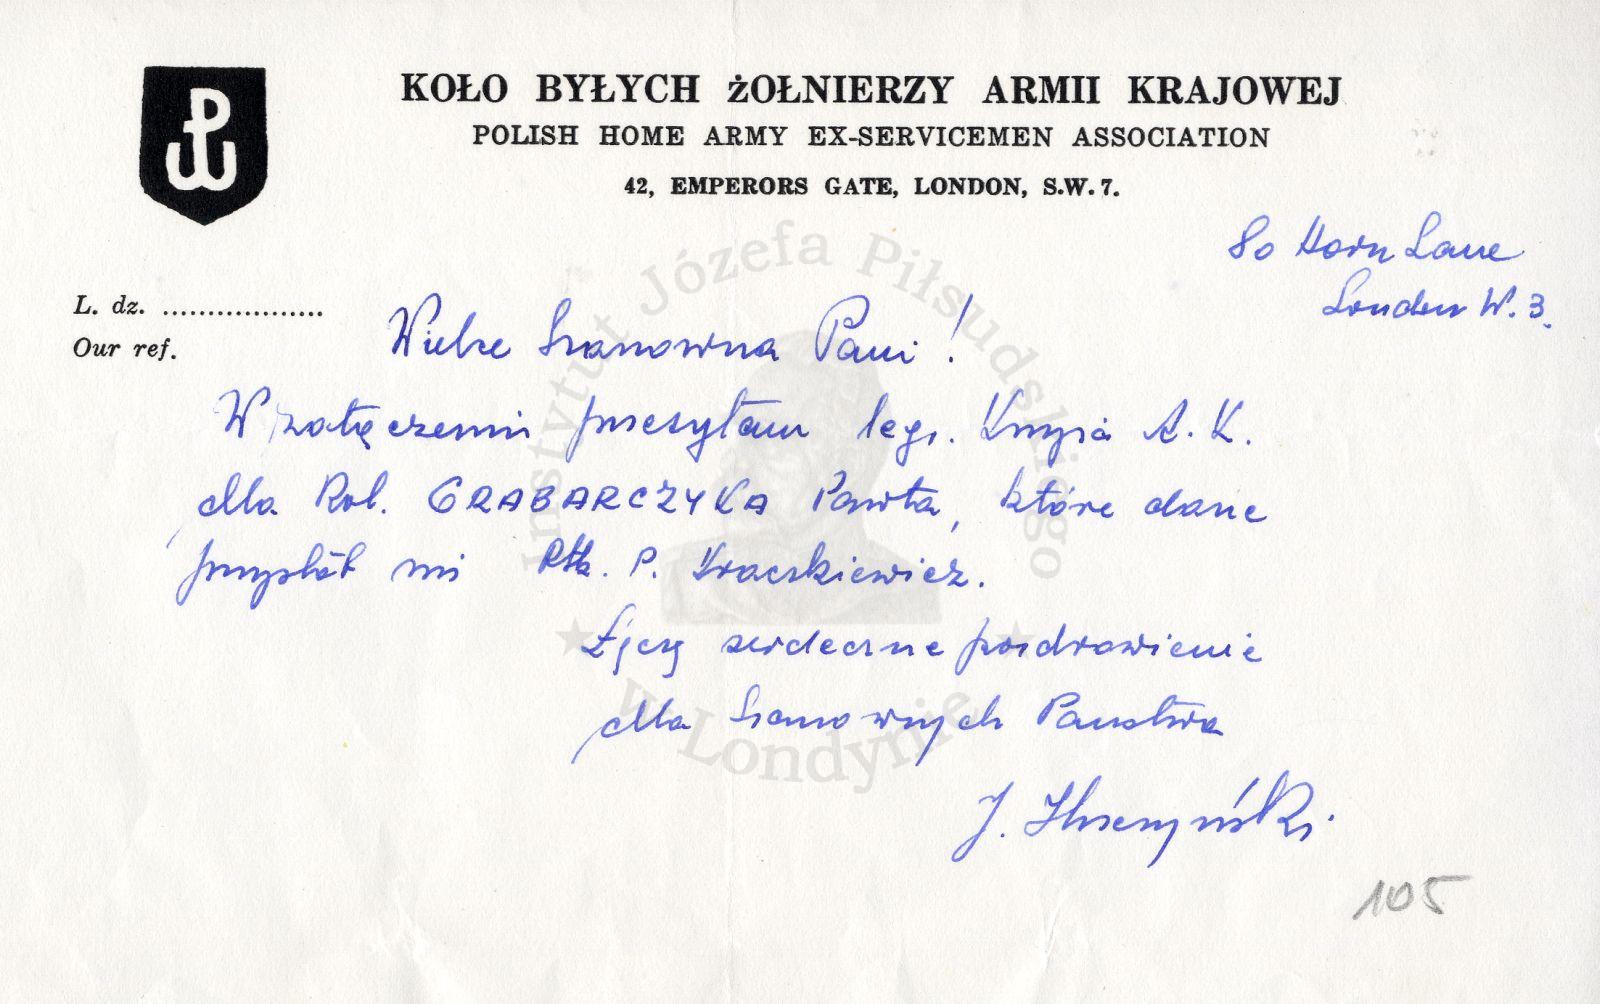 KOŁO BYŁYCH ŻOŁNIERZY ARMII KRAJOWEJ
POLISH HOME ARMY EX-SERVICEMEN ASSOCIATION
42, EMPERORS GATE, LONDON, S.W. 7.
80 Horn Lane
London W. 3.
L. dz. ..................
Our ref.
Wielce Szanowna Pani!
W załączeniu przesyłam leg. Krzyża A.K.
dla Rob. GRABARCZYKA Pawła, które dane
przysłał mi Rtk. P. Kraczkiewicz.
Łączę serdeczne pozdrowienie
dla Szanownych Państwa
J.
105
Instytut Józefa Piłsudskiego
w Londynie